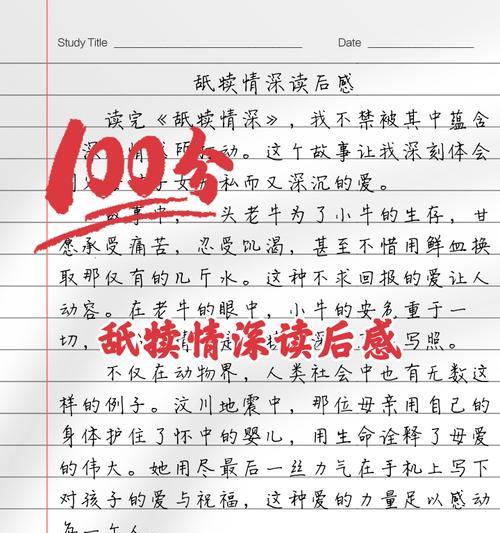 Study Title Date
舐犊情深读后感
读完《舐犊情深》，我不禁被其中蕴含
动。这个故事让我深刻体会
私而又深沉的爱。
100分
头老牛为了小牛的生存，甘
愿承受痛苦，忍受饥渴，甚至不惜用鲜血换
取那仅有的几斤水。这种不求回报的爱让人
动容。在老牛的眼中，小牛的安危重于一
切，写照。
舐犊情深读后感
不仅在动物界，人类社会中也有无数这
样的例子。汶川地震中，那位母亲用自己的
身体护住了怀中的婴儿，用生命诠释了母爱
的伟大。她用尽最后一丝力气在手机上写下
对孩子的爱与祝福，这种爱的力量足以感动
每一个人